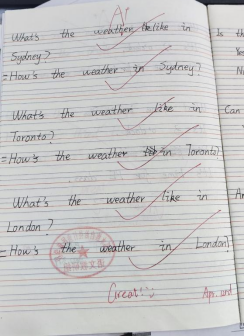 A+
What's the weather like in
Sydney?
= How's the weather in Sydney?
What's the weather like in
Toronto?
= How's the weather in Toronto?
What's the weather like in
London?
= How's the weather in London?
Great!
Is
Can